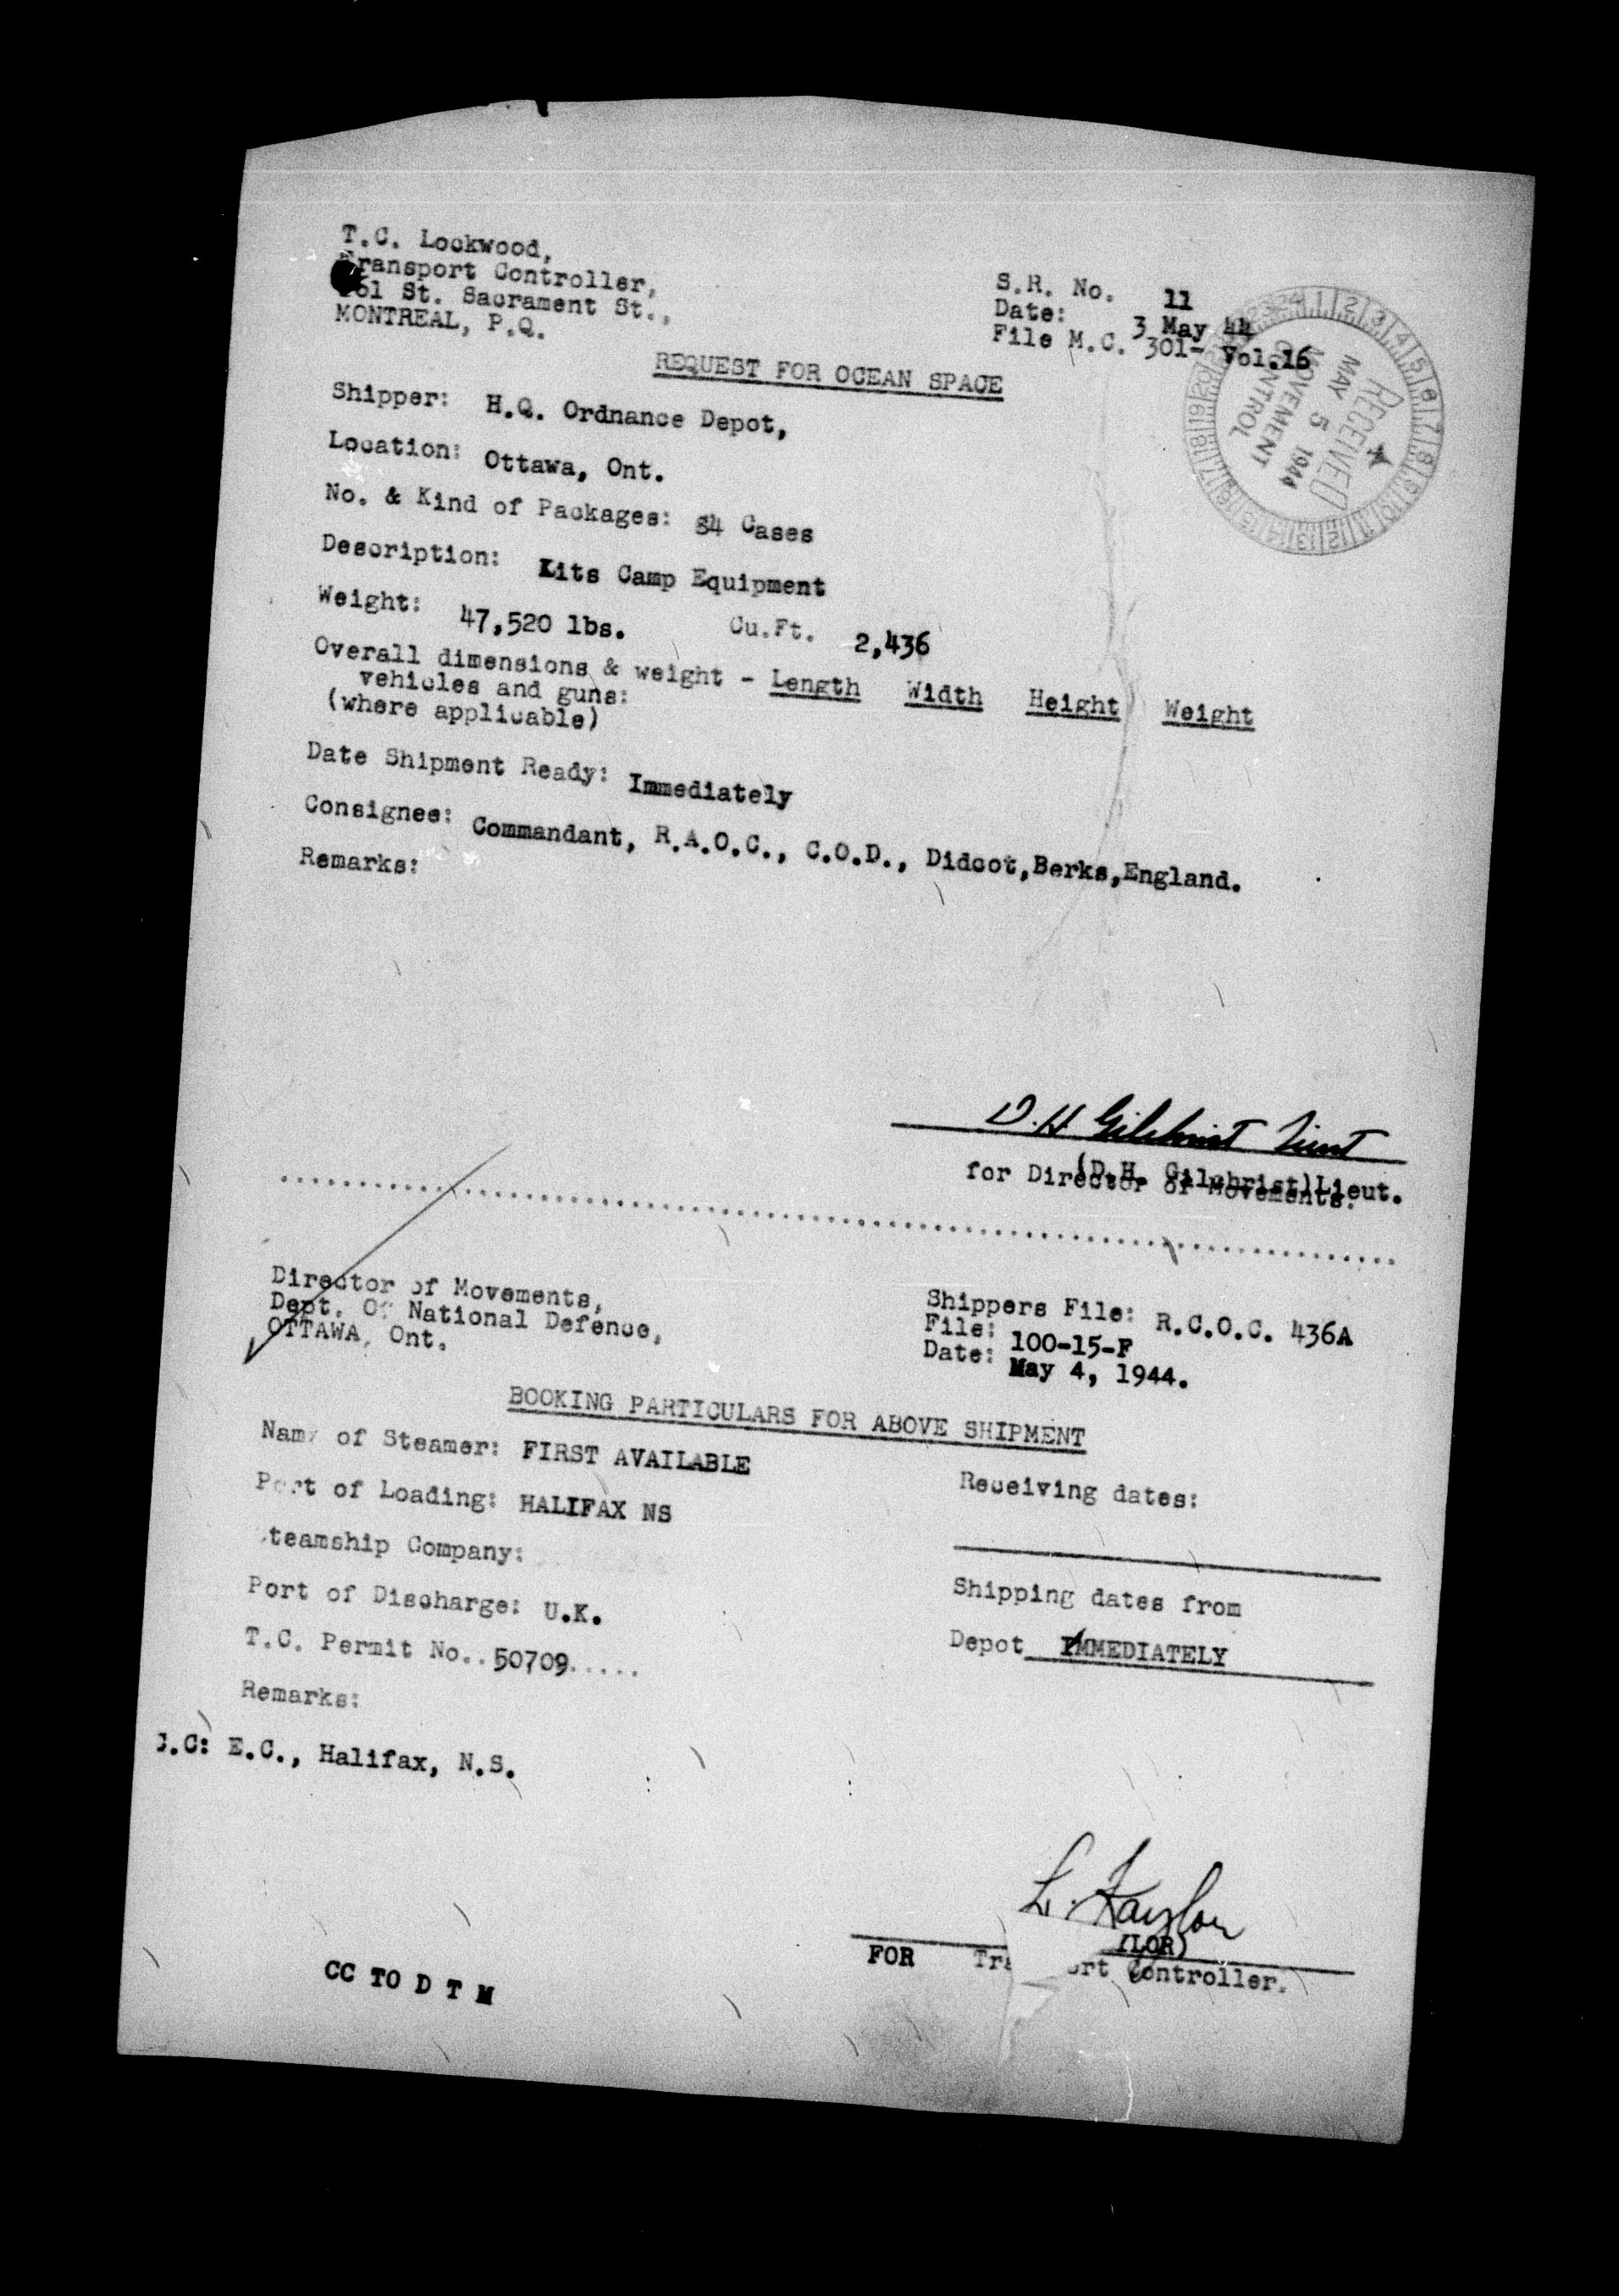 T.C. Lockwood,
Transport Controller,
261 St. Sacrament St.,
MONTREAL, P.Q.
S.R. No. 11
Date: 3 May 44
File M.C. 301- Vol.16
RECEIVED
MAY 5 1944
MOVEMENT
CONTROL
REQUEST FOR OCEAN SPACE
Shipper: H.Q. Ordnance Depot,
Location: Ottawa, Ont.
No. & Kind of Packages: 84 Cases
Description: Kits Camp Equipment
Weight: 47,520 lbs. Cu.Ft. 2,436
Overall dimensions & weight - Length Width Height Weight
vehicles and guns:
(where applicable)
Date Shipment Ready: Immediately
Consignee: Commandant, R.A.O.C., C.O.D., Didcot,Berks,England.
Remarks:
D.H Gilchrist Lieut
(D.H. Gilchrist)Lieut.
for Director of Movements.
Director of Movements,
Dept. Of National Defence,
OTTAWA, Ont.
Shippers File: R.C.O.C. 436A
File: 100-15-F
Date: May 4, 1944.
BOOKING PARTICULARS FOR ABOVE SHIPMENT
Name of Steamer: FIRST AVAILABLE
Receiving dates:
Port of Loading: HALIFAX NS
Steamship Company:
Port of Discharge: U.K.
Shipping dates from
Depot IMMEDIATELY
T.C. Permit No..50709.....
Remarks:
C.C: E.C., Halifax, N.S.
FOR Transport Controller.
CC TO D T M